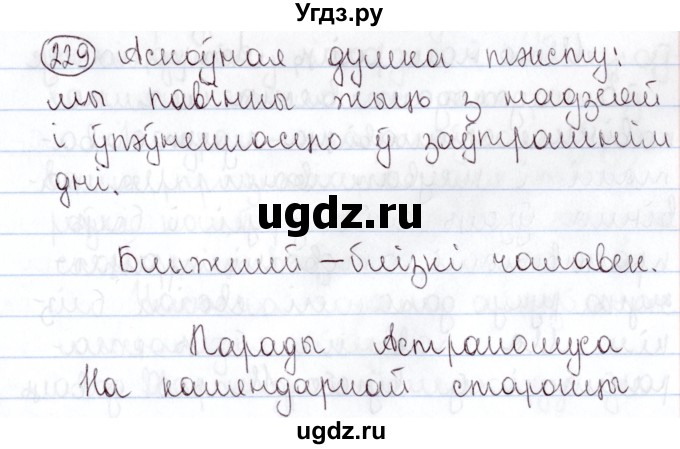 Угдз.ру
229 Асноўная думка тэксту:
мы павінны жыць з надзеяй
і ўпэўненасцю ў заўтрашнім
дні.
ugdz.ru
Ближний – блізкі чалавек.
Парады Астраномуса
ugdz.ru
На каляндарнай старонцы
ugdz.ru